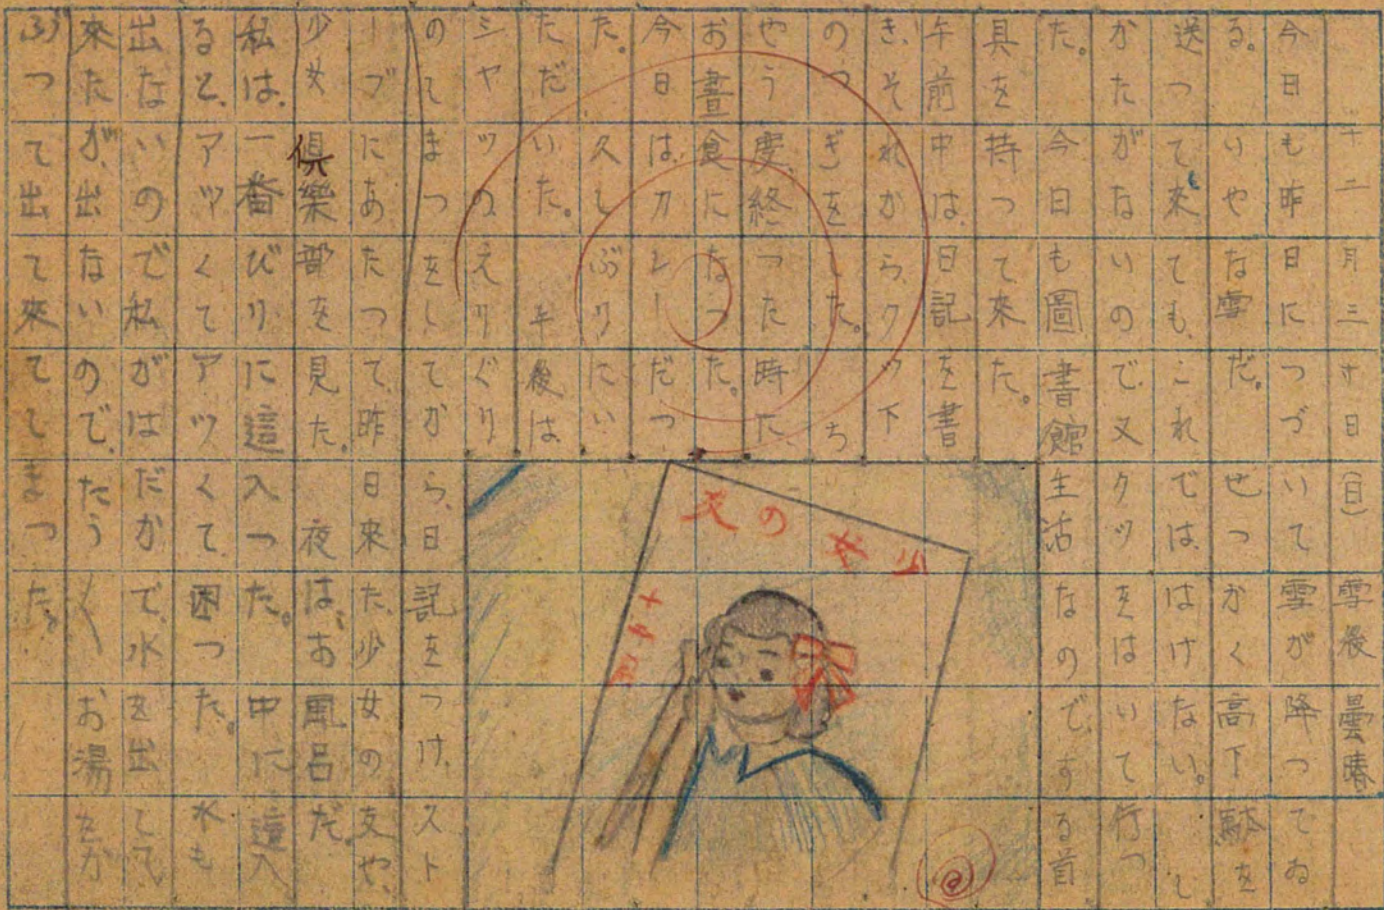 十二月三十日(日)雪後曇晴
今日も昨日につづいて雪が降つてゐ
る。いやな雪だ。せつかく高下駄を
送つて來ても、これでは、はけない。し
かたがないので又クツをはいて行つ
た。今日も圖書館生活なので、する首
具を持つて來た。
午前中は、日記を書
き、それから、クツ下
のつぎをした。ち
やう度、終つた時た
お晝食になつた。
今日は、カレーだつ
た。久しぶりにい
ただいた。午後は
シヤツのえりぐり
のてまつをしてから、日記をつけ、スト
ーブにあたつて、昨日來た、少女の友や、
少女倶樂部を見た。夜は、お風呂だ。
私は、一番びりに這入つた。中に這入
ると、アツくてアツくて、困つた。水も
出ないので私がはだかで、水を出しに
來たが、出ないので、たう〱お湯をか
ぶつて出て來てしまつた。
少女の友
十一月